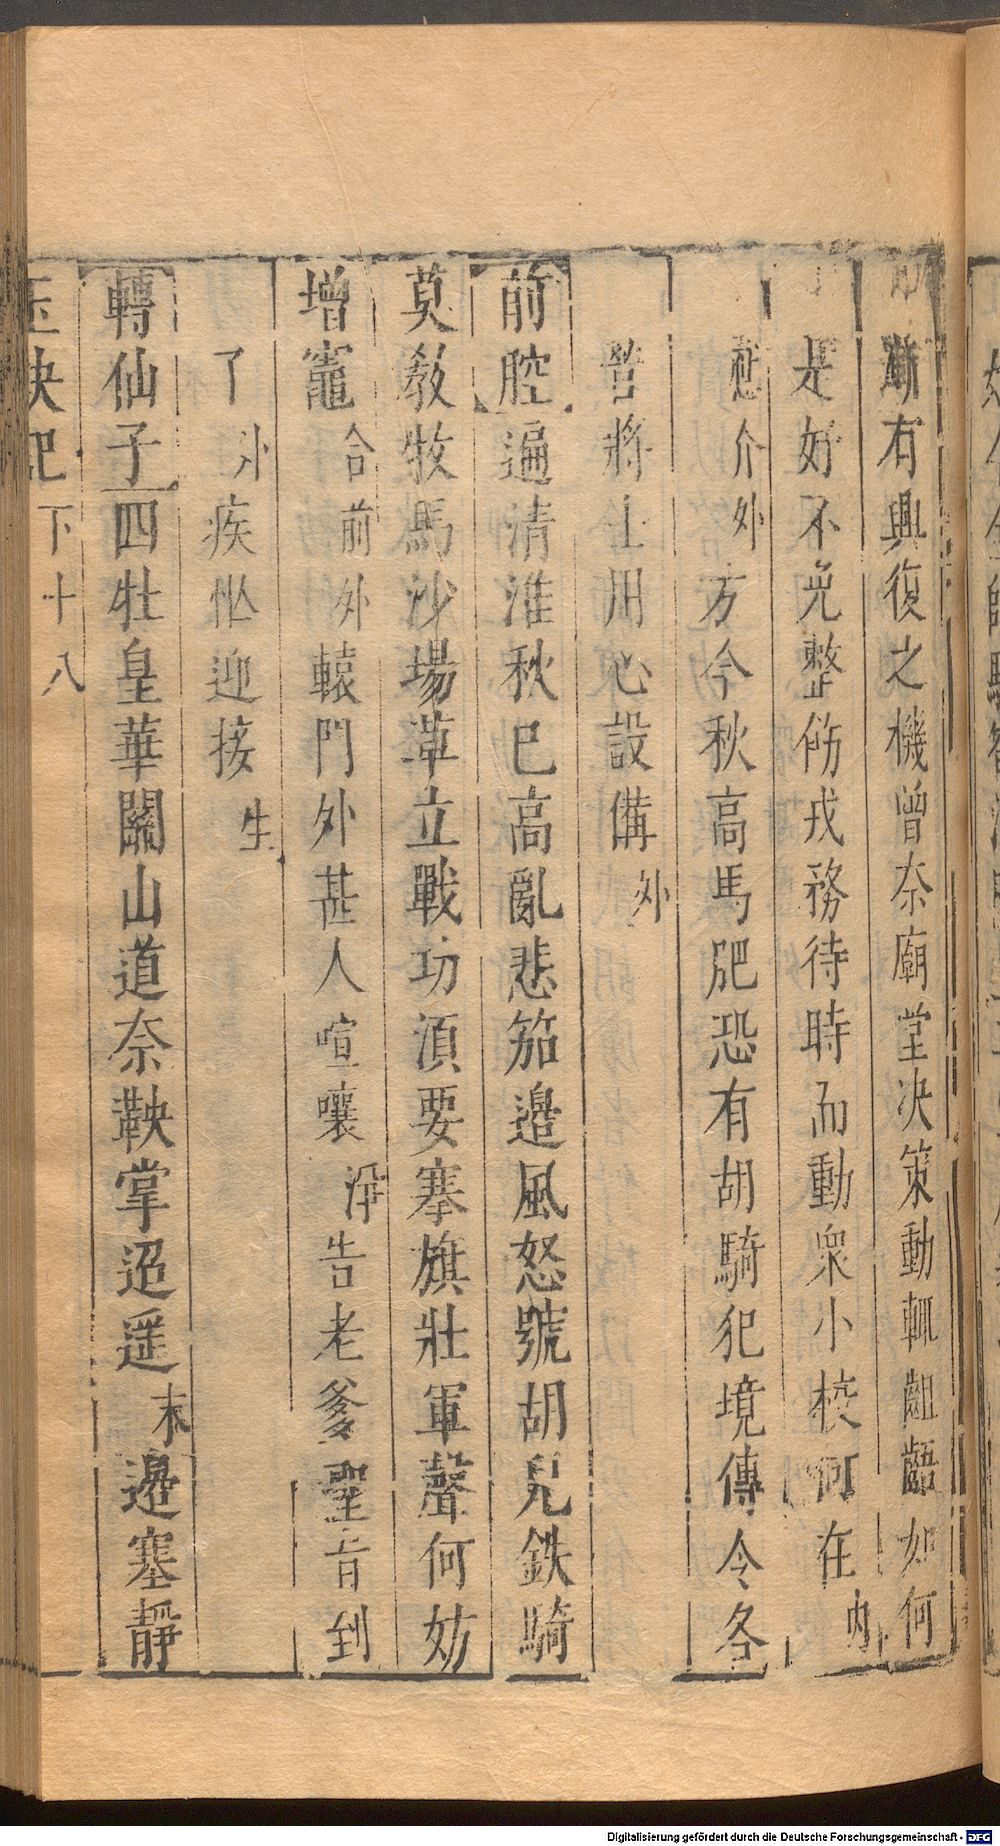 漸有興復之機曾奈廟堂决策動輒齟齬如何
是好不免整飭戎務待時而動衆小校何在内
介外方今秋高馬肥恐有胡騎犯境傳令各
營將士用心設備外
前腔遍清淮秋已高亂悲笳邉風怒號胡兒鉄騎
莫教牧馬沙場草立戰功湏要搴旗壯軍聲何妨
增竈合前外轅門外甚人喧嚷淨告老爹聖旨到
了外疾忙迎接生
轉仙子四牡皇華關山道奈鞅掌迢遥末邉塞靜
玉玦記 下十八
Digitalisierung gefördert durch die Deutsche Forschungsgemeinschaft - DFG